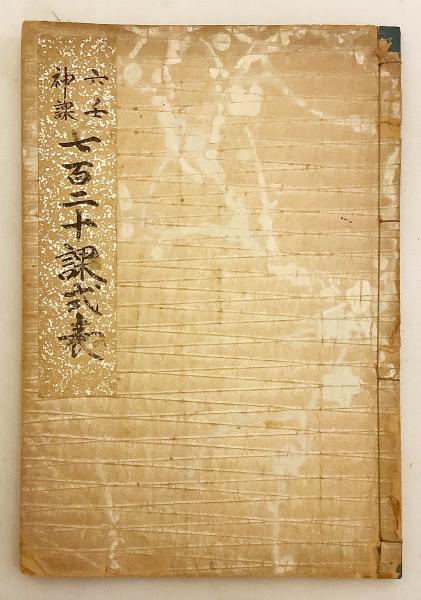 六壬
神課
七百二十課式表